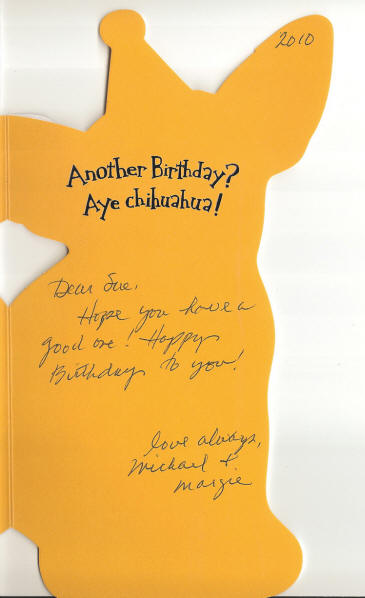 2010
Another Birthday?
Aye chihuahua!
Dear Sue,
Hope you have a
good one! Happy
Birthday to you!
love always,
Michael &
Margie